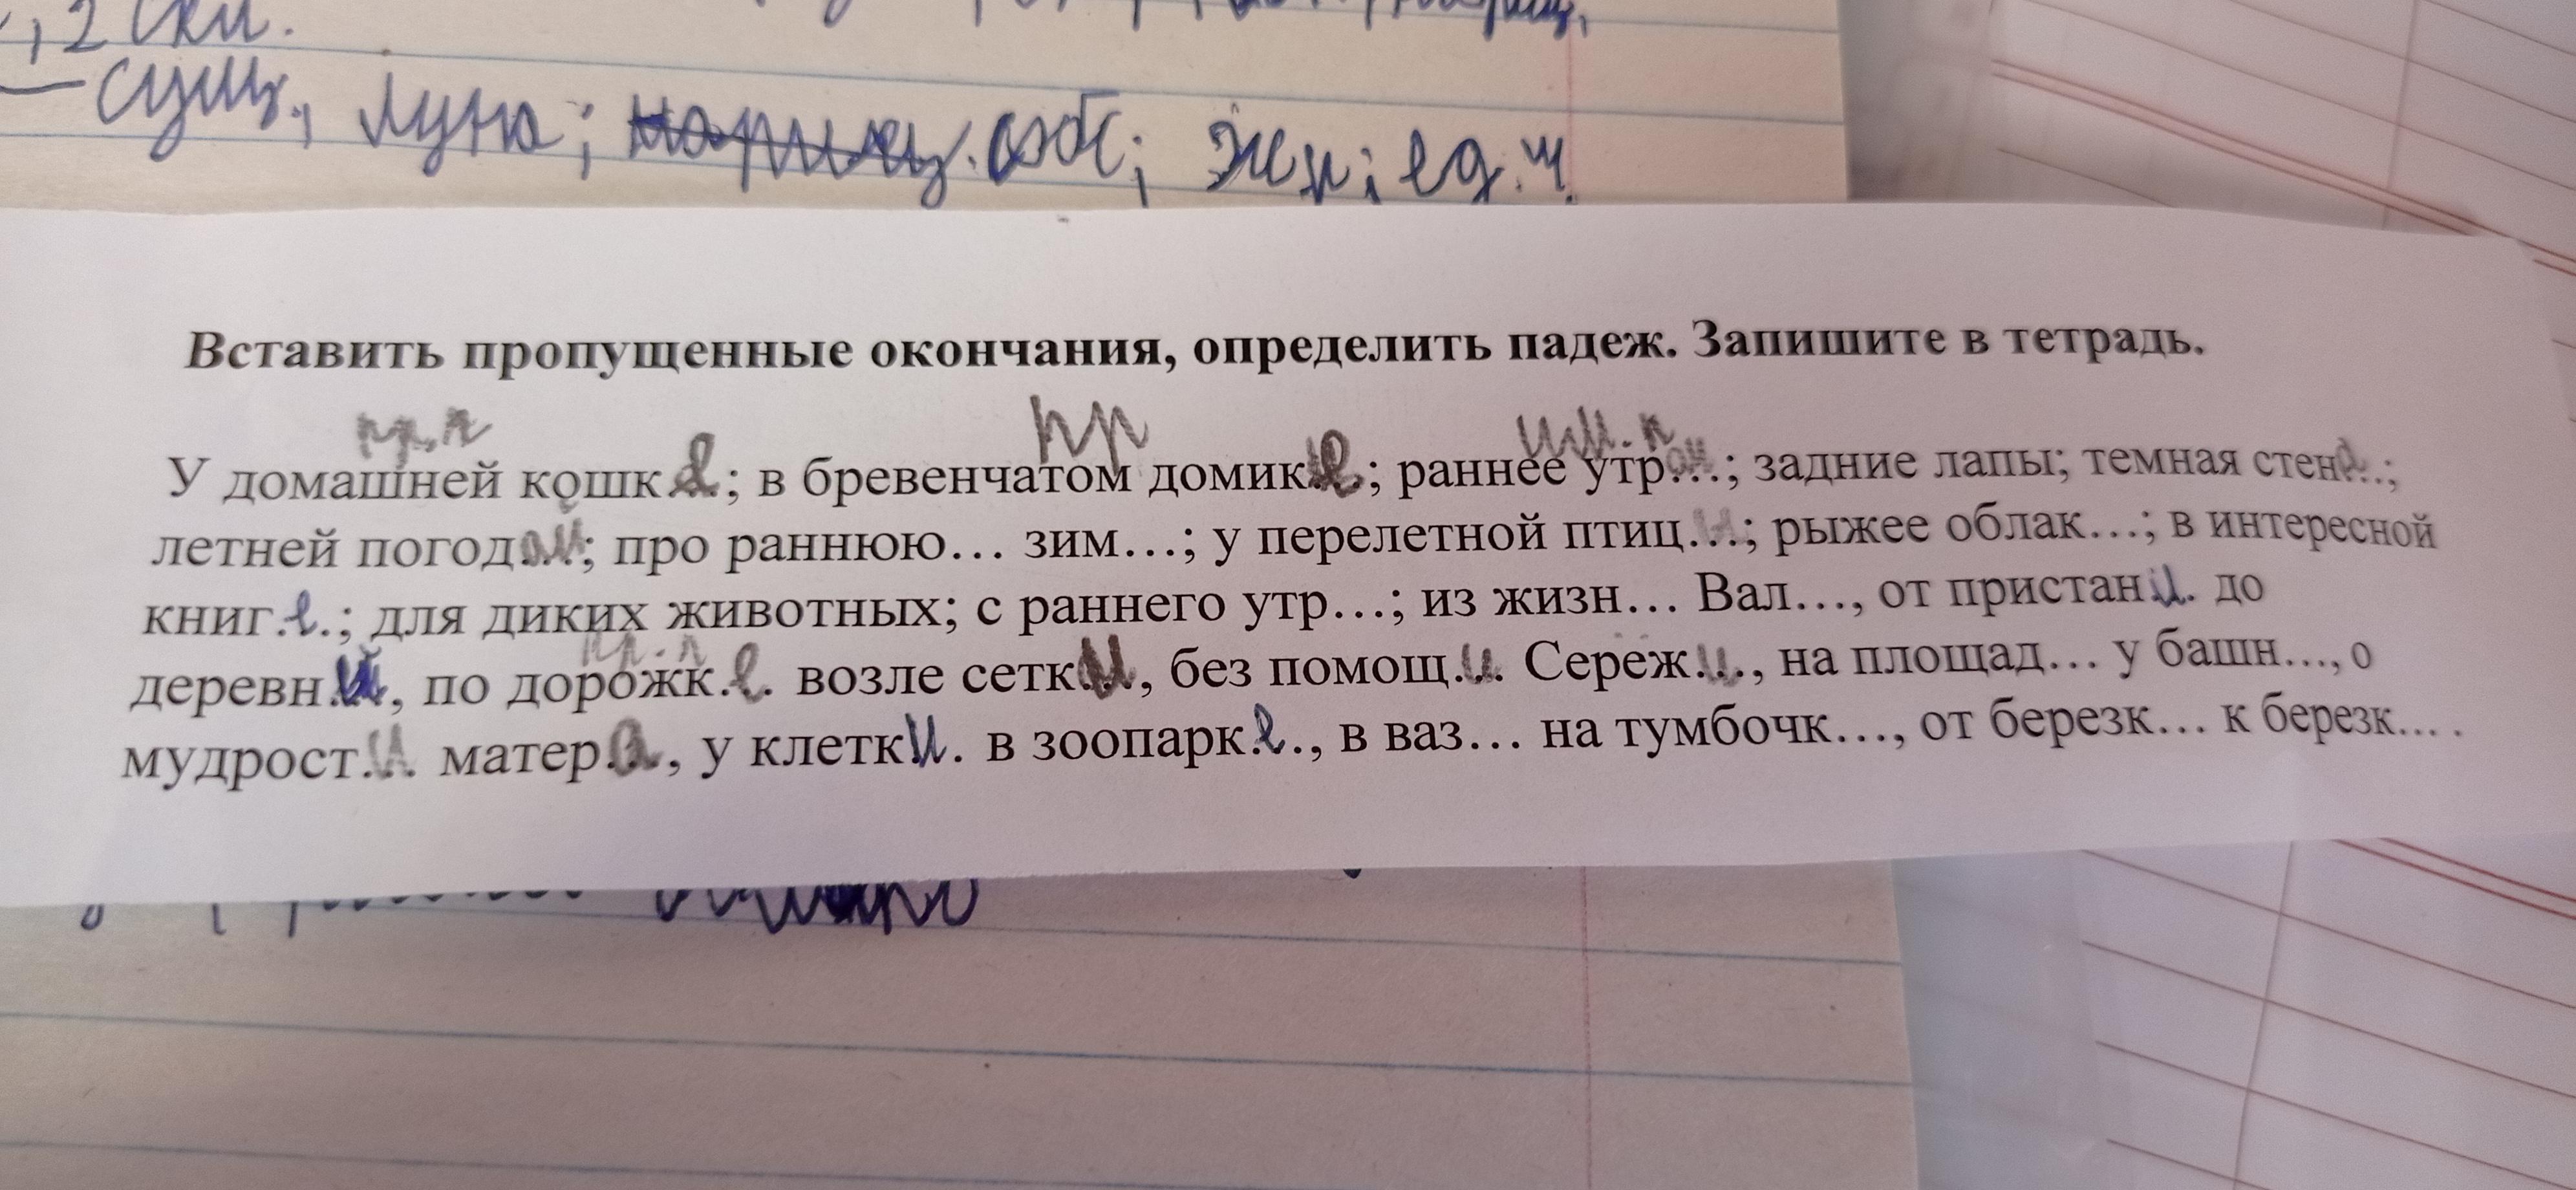 , 2 скл.
– сущ., луна; нариц. собс; ж.р; ед.ч.
Вставить пропущенные окончания, определить падеж. Запишите в тетрадь.
пр.п пр им.п
У домашней кошке...; в бревенчатом домике...; раннее утром...; задние лапы; темная стена...;
летней погодой...; про раннюю... зим...; у перелетной птици...; рыжее облак...; в интересной
книге...; для диких животных; с раннего утр...; из жизн... Вал..., от пристани... до
пр.п
деревни..., по дорожке... возле сетки..., без помощи... Сережи..., на площад... у башн..., о
мудрости... матера..., у клетки. в зоопарке..., в ваз... на тумбочк..., от березк... к березк... .